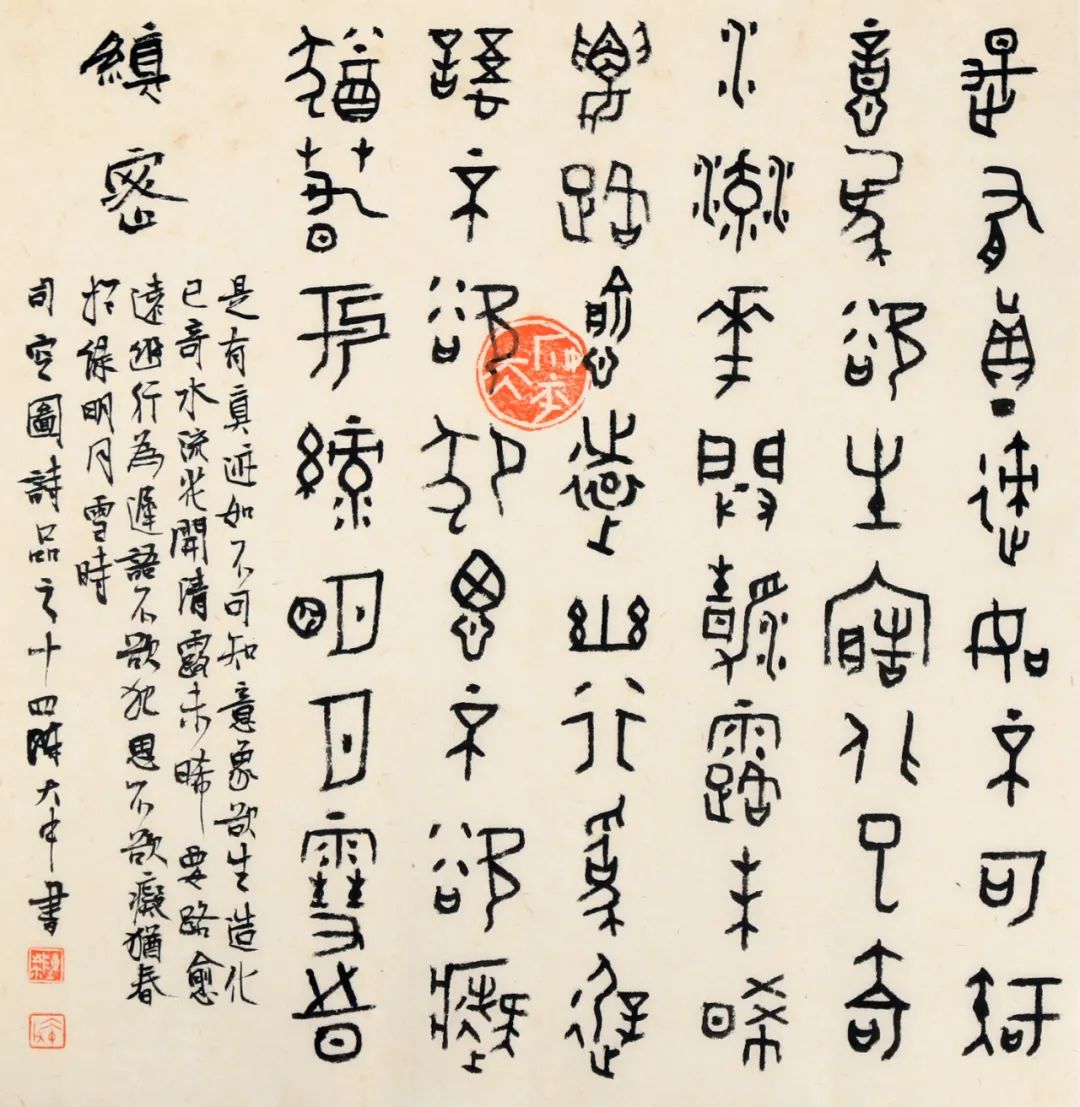 是有真迹如不可知
意象欲生造化已奇
水流花開清露未晞
要路愈遠幽行為遲
語不欲犯思不欲癡
猶春於綠明月雪時
縝密
是有真迹如不可知意象欲生造化
已奇水流花開清露未晞要路愈
遠幽行為遲語不欲犯思不欲癡猶春
於綠明月雪時
司空圖詩品之十四陳大中書